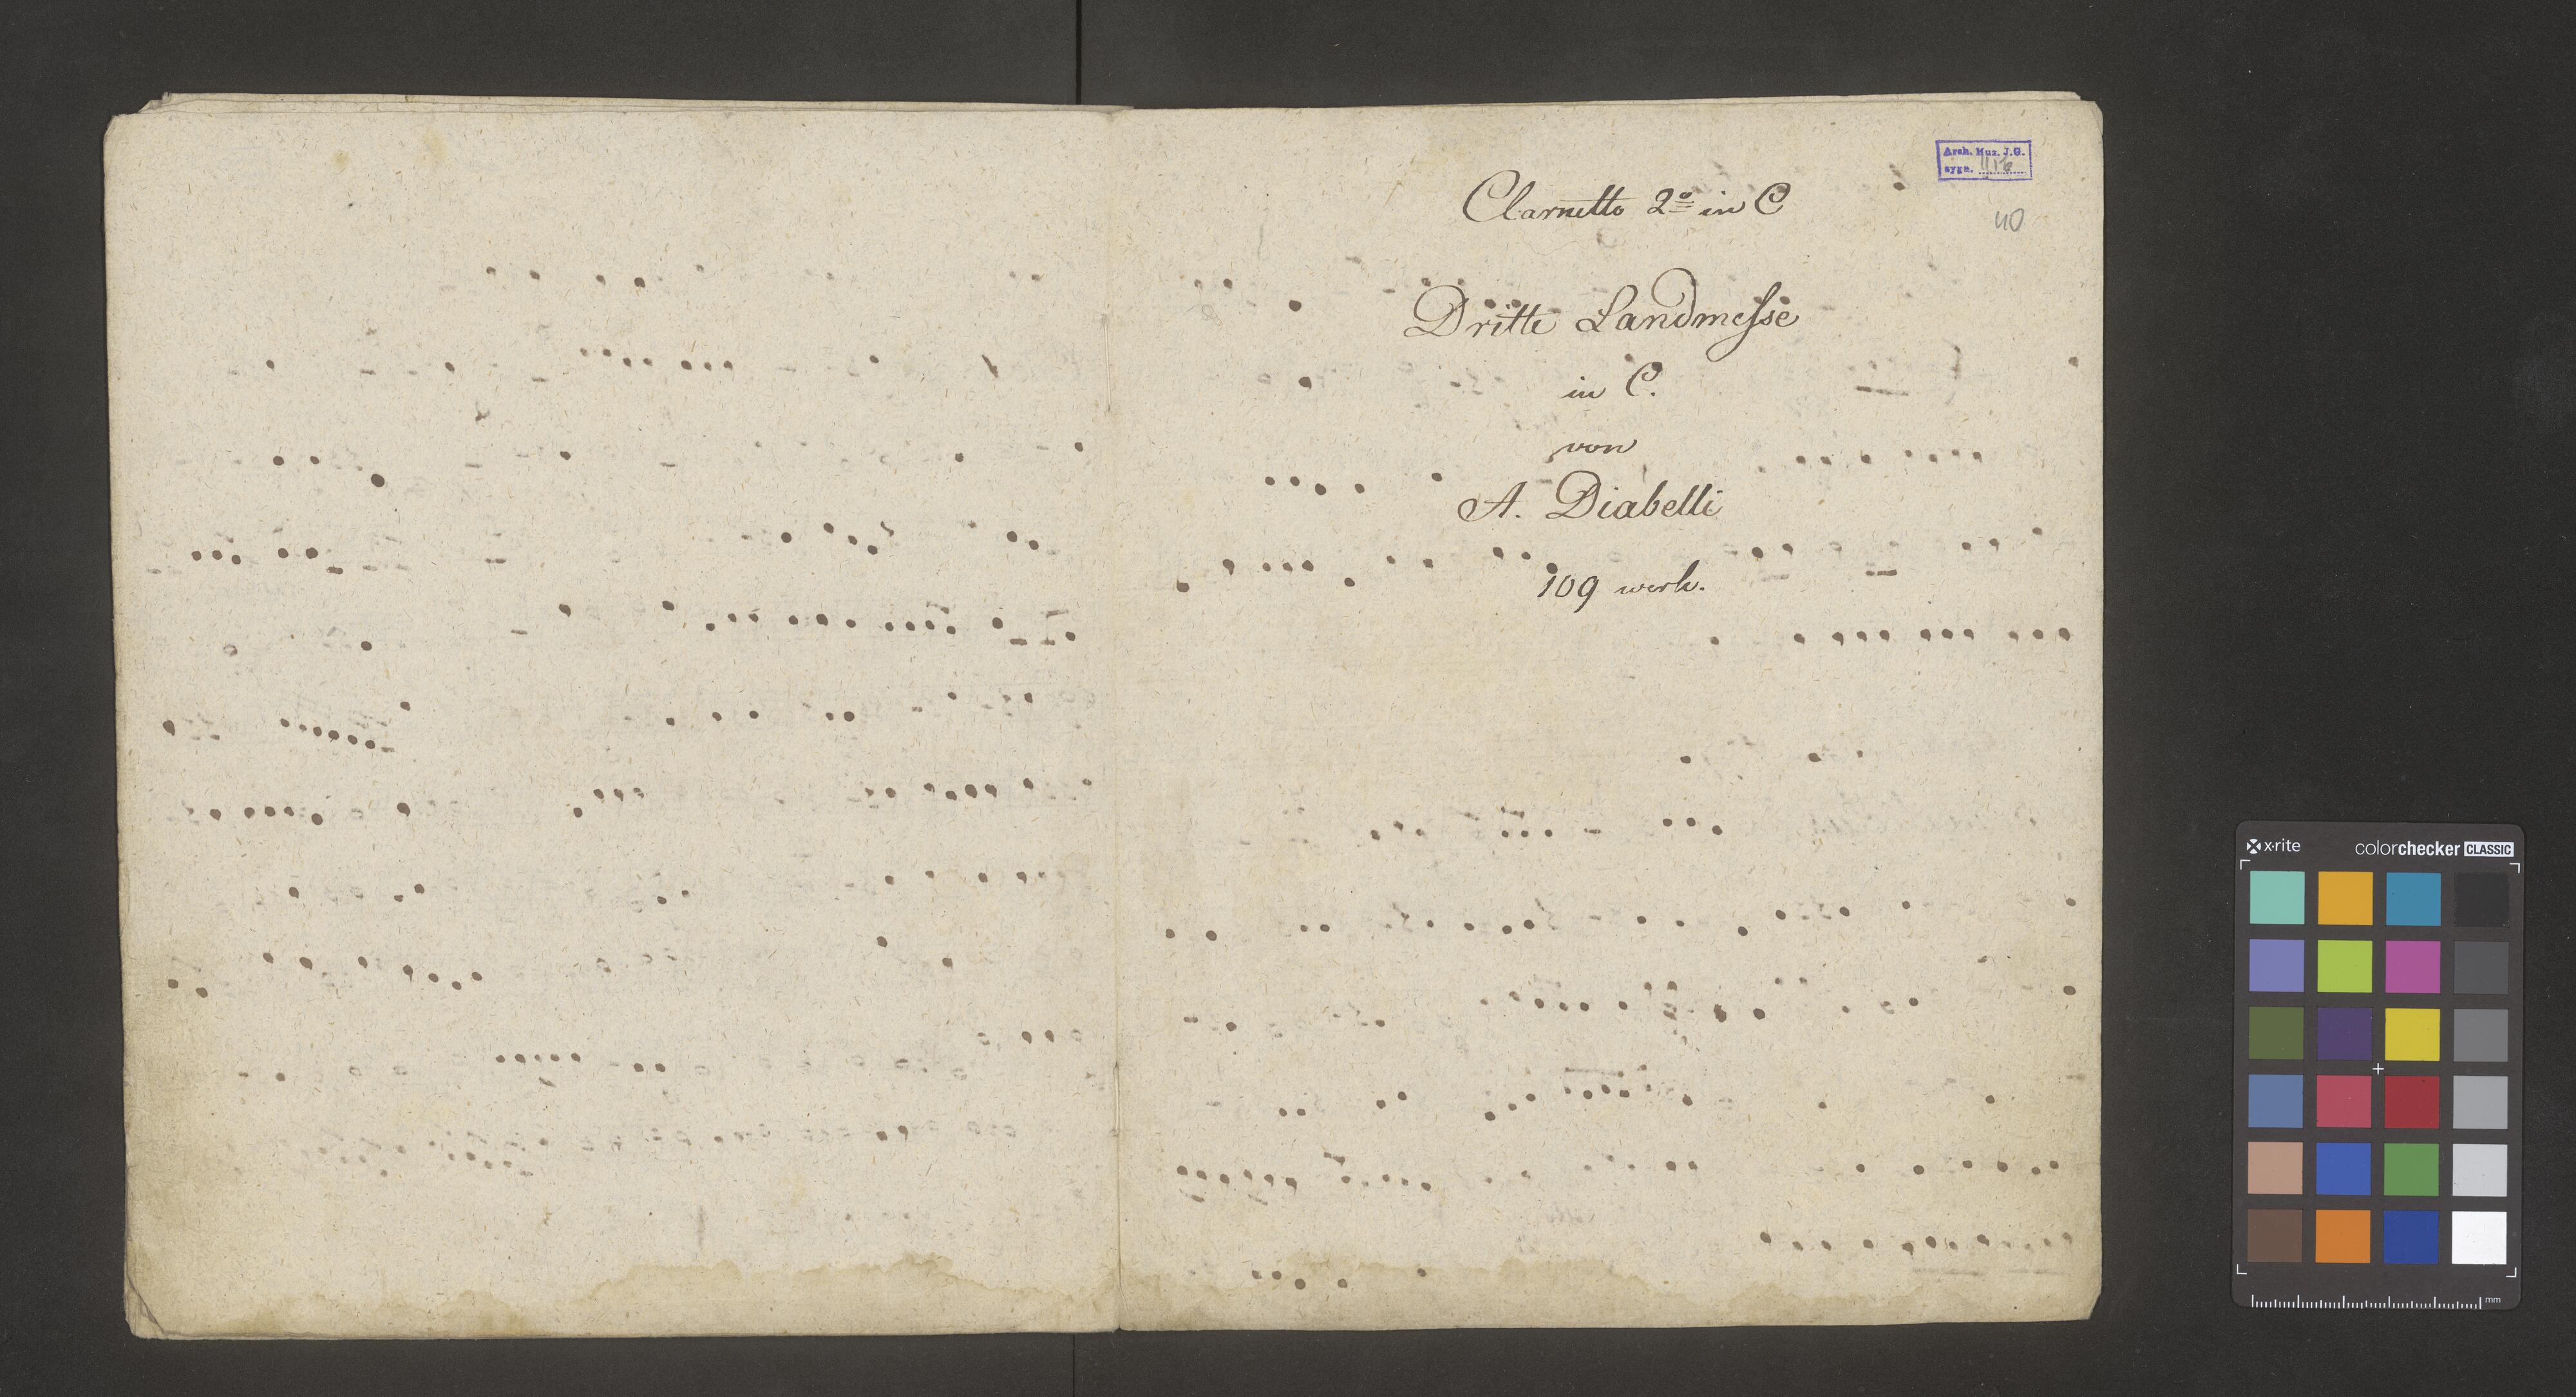 Arch. Muz. J.G.
sygn.
Clarnetto 2º in C
40
Dritte Landmesse
in C.
von
A. Diabelli
109 werk.
x·rite colorchecker CLASSIC
mm